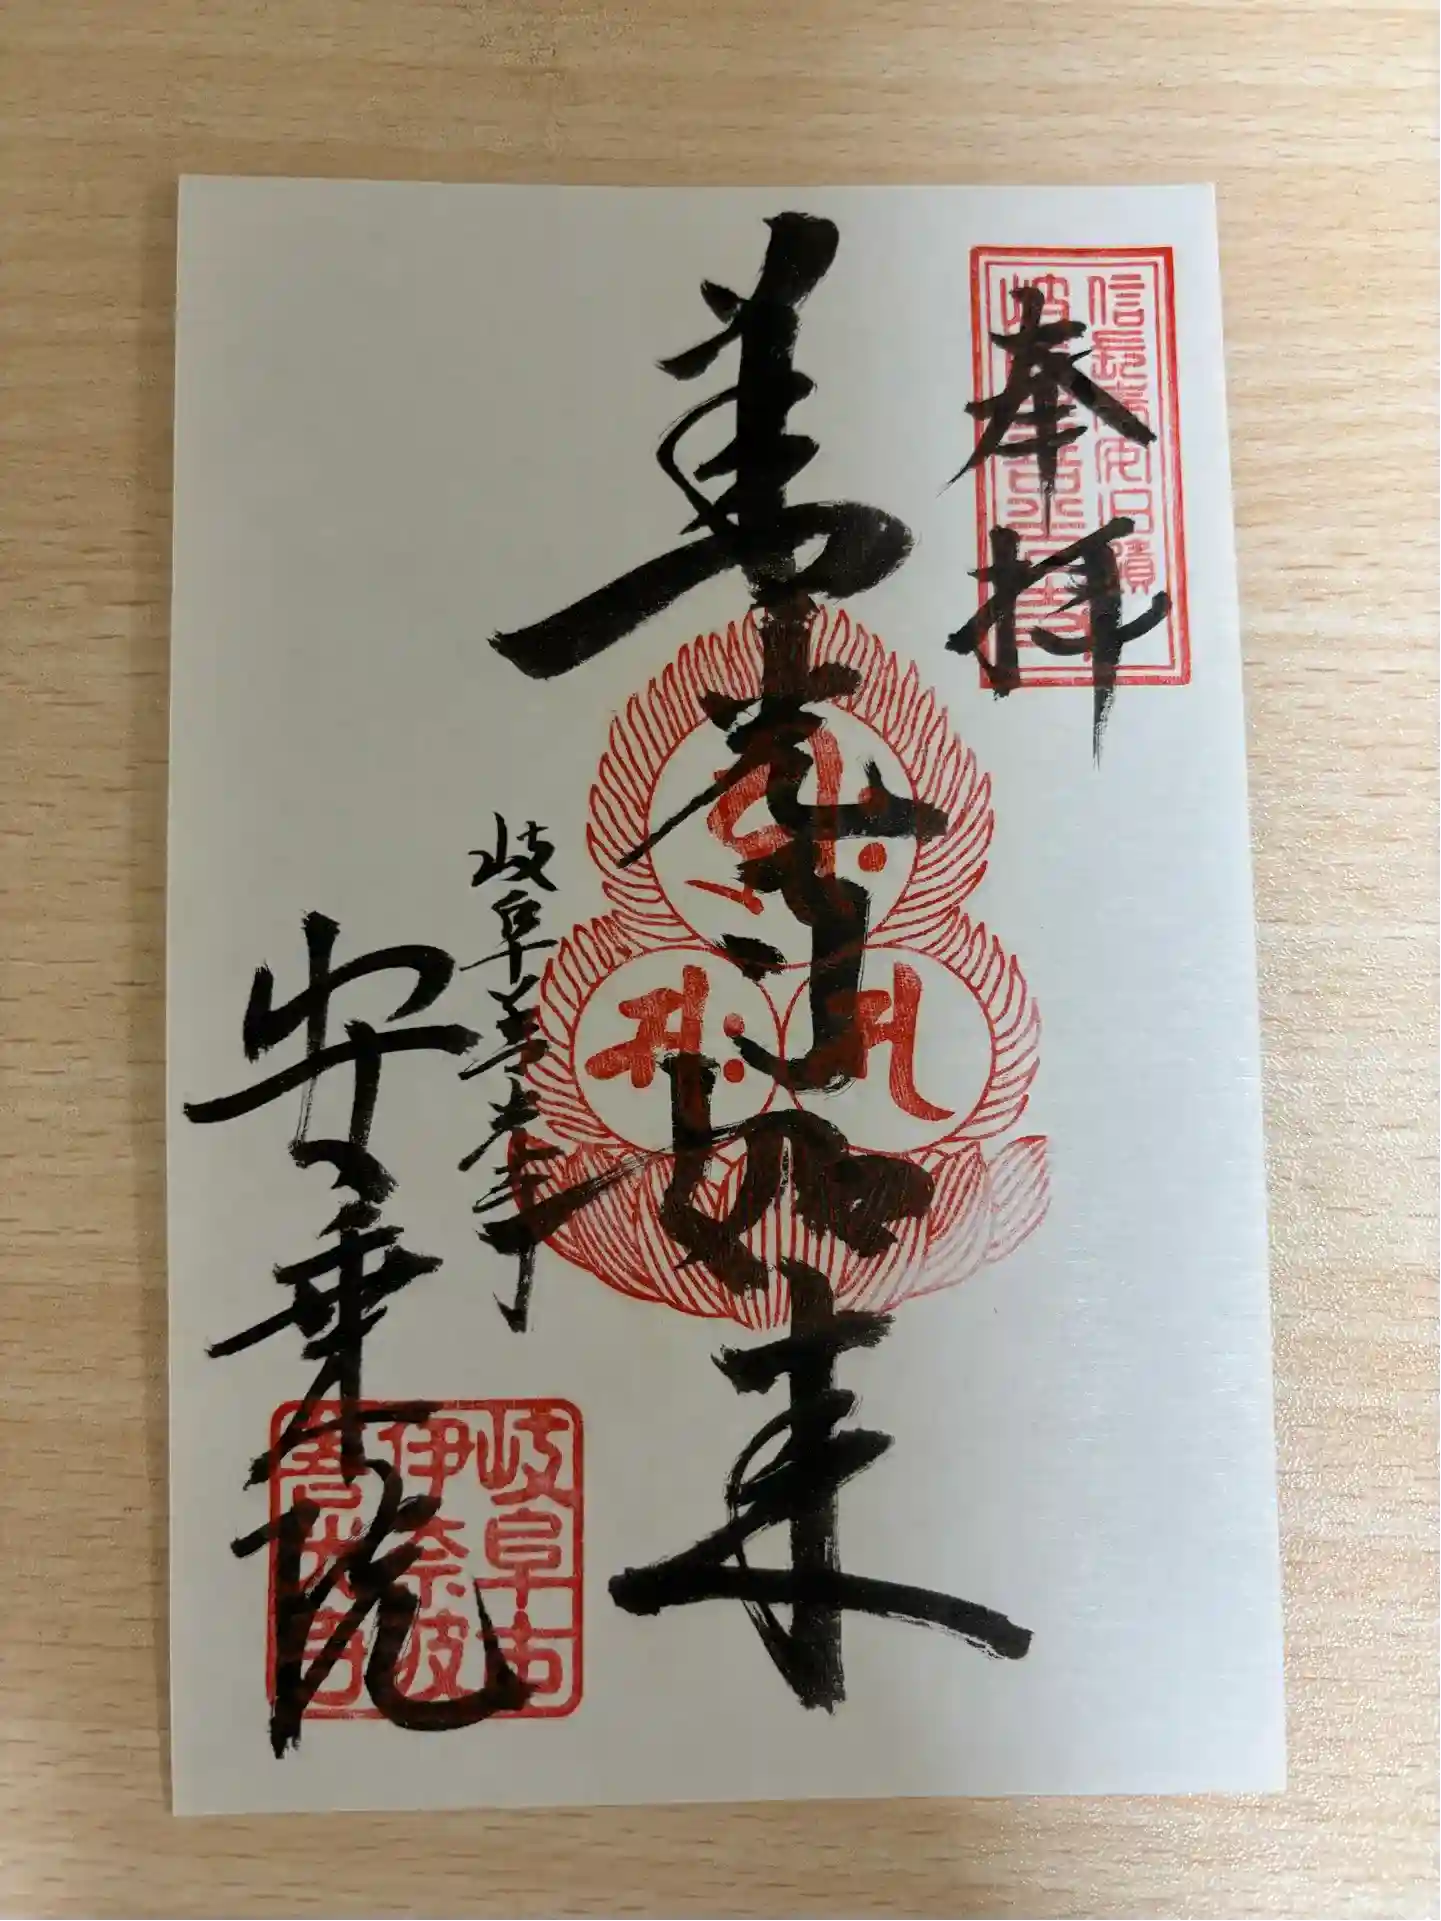 奉拝
信長奉安旧蹟
岐阜善光寺
善光寺如来
岐阜善光寺
安乗院
岐阜市
伊奈波
善光寺